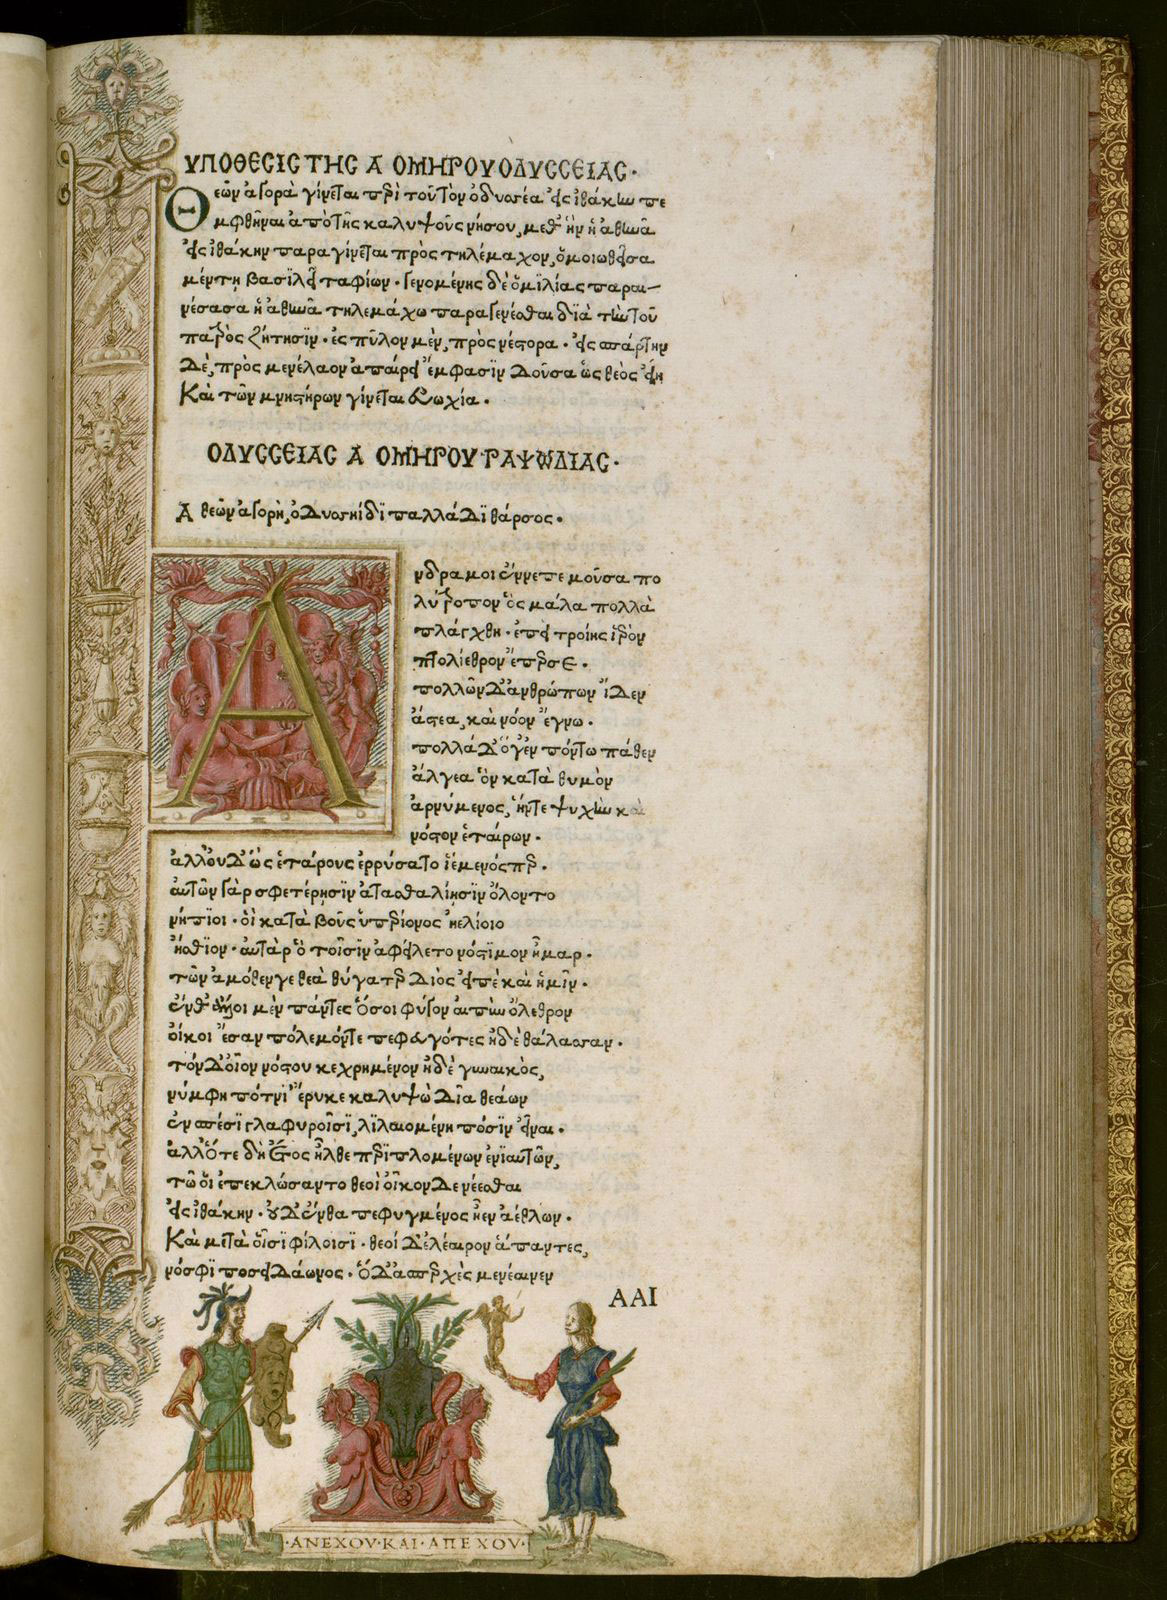 ΥΠΟΘΕCΙC ΤΗC Α ΟΜΗΡΟΥ ΟΔΥCCΕΙΑC·
Θεῶν ἀγορὰ γίνεται περὶ τοῦ τὸν ὀδυσέα εἰς ἰθάκην πε
μφθῆναι ἀπὸ τῆς καλυψοῦς νήσου, μεθ' ἣν ἡ ἀθηνᾶ
εἰς ἰθάκην παραγίνεται πρὸς τηλέμαχον, ὁμοιωθεῖσα
μέντη βασϊλεῖ ταφίων· γενομένης δὲ ὁμϊλίας παραι-
νέσασα ἡ ἀθηνᾶ τηλεμάχω παραγενέσθαι δϊὰ τὴν τοῦ
πατρὸς ζήτησϊν· ἐς πῦλον μὲν, πρὸς νέστορα· εἰς σπάρτην
Δὲ, πρὸς μενέλαον ἀπαίρει ἔμφασϊν Δοῦσα ὡς θεὸς εἴη
Καὶ τῶν μνηστήρων γίνεται εὐωχία·
ΟΔΥCCΕΙΑC Α ΟΜΗΡΟΥ ΡΑΨΩΔΙΑC·
Α θεῶν ἀγορὴ, ὀΔυσηίδϊ παλλάΔϊ θάρσος·
Ανδρα μοι ἔννεπε μοῦσα πο
λύτροπον ὃς μάλα πολλὰ
πλάγχθη· ἐπεὶ τροίης ἱερὸν
πτολίεθρον ἔπερσε·
πολλῶν Δ' ἀνθρώπων ἴΔεν
ἄστεα, καὶ νόον ἔγνω·
πολλά Δ' ὅγ' ἐν πόντω πάθεν
ἄλγεα ὃν κατὰ θυμὸν
ἀρνύμενος, ἥντε ψυχὴν καὶ
νόστον ἑταίρων·
ἀλλ' οὐΔ' ὡς ἑτάρους ἐρρύσατο ἱέμενός περ·
αὐτῶν γὰρ σφετέρησϊν ἀτασθαλίησϊν ὄλοντο
νήπϊοι· οἳ κατὰ βοῦς ὑπερίονος ἠελίοιο
ἤσθϊον· αὐτὰρ ὁ τοῖσϊν ἀφείλετο νόστϊμον ἦμαρ·
τῶν ἀμόθεν γε θεὰ θύγατερ Διὸς εἰπὲ καὶ ἡμῖν·
ἔνθ' ἄλλοι μὲν πάντες ὅσοι φύγον αἰπὺν ὄλεθρον
οἴκοι ἔσαν πόλεμόν τε πεφευγότες ἠδὲ θάλασσαν·
τόνΔ' οἶον νόστου κεχρημένον ἠδὲ γυναικὸς,
νύμφη πότνϊ' ἔρυκε καλυψὼ Δῖα θεάων
ἐν σπέσϊ γλαφυροῖσϊ, λϊλαιομένη πόσϊν εἶναι·
ἀλλ' ὅτε δὴ ἔτος ἦλθε περϊπλομένων ἐνϊαυτῶν,
τῶ οἱ ἐπεκλώσαντο θεοὶ οἶκονΔε νέεσθαι
εἰς ἰθάκην· οὐΔ' ἔνθα πεφυγμένος ἦεν ἀέθλων·
Καὶ μετὰ οἷσϊ φίλοισϊ· θεοὶ Δ' ἐλέαιρον ἅπαντες,
νόσφϊ ποσειΔάωνος· ὁ Δ' ἀσπερχὲς μενέαινεν
ΑΑΙ
·ΑΝΕΧΟΥ·ΚΑΙ·ΑΠΕΧΟΥ·